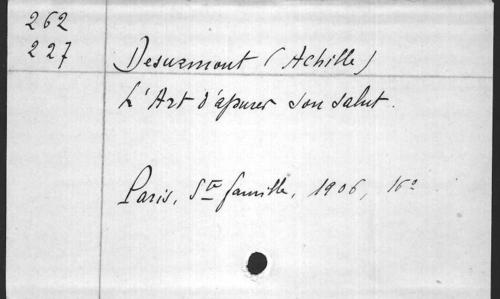 262
227
Desurmont (Achille)
L'Art d'apurer son salut.
Paris, Ste famille, 1906, 16o